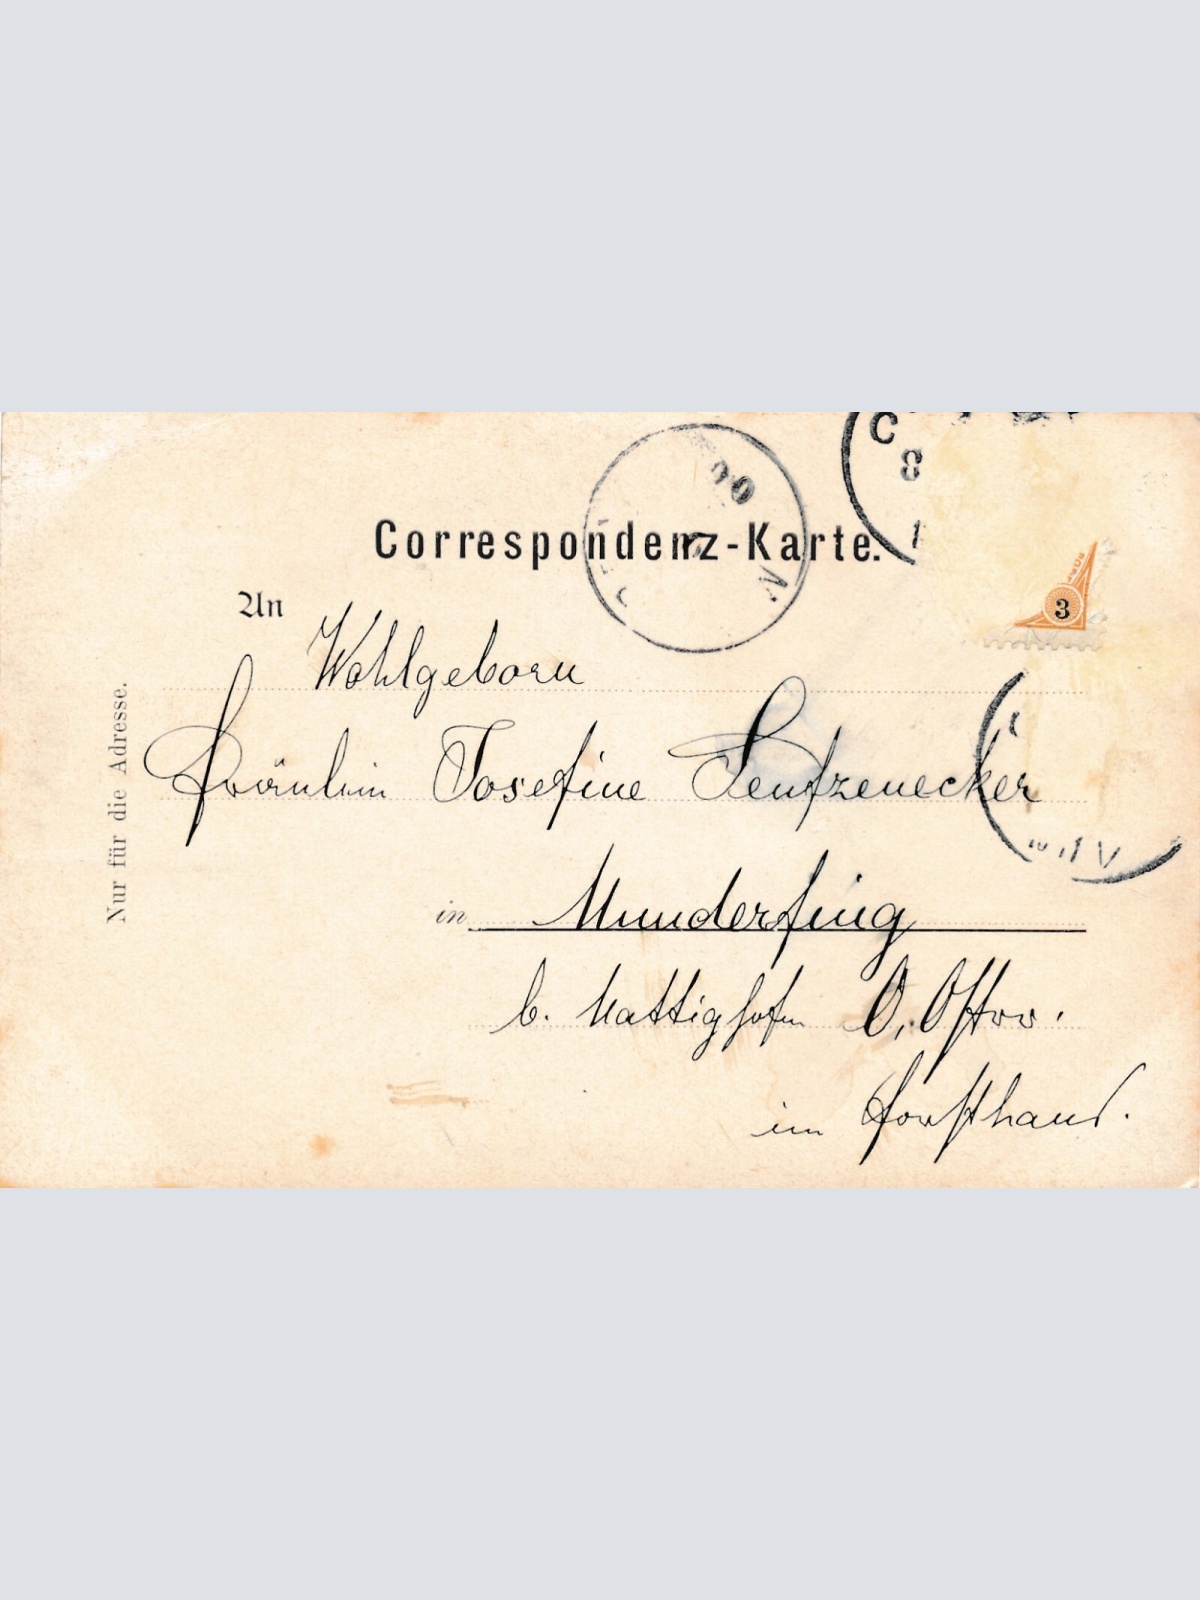 Correspondenz-Karte.
An
Wohlgeborn
Fräulein Josefine
in Munderfing
b. Mattighofen O. Östrr.
im Forsthaus.
Nur für die Adresse.
3